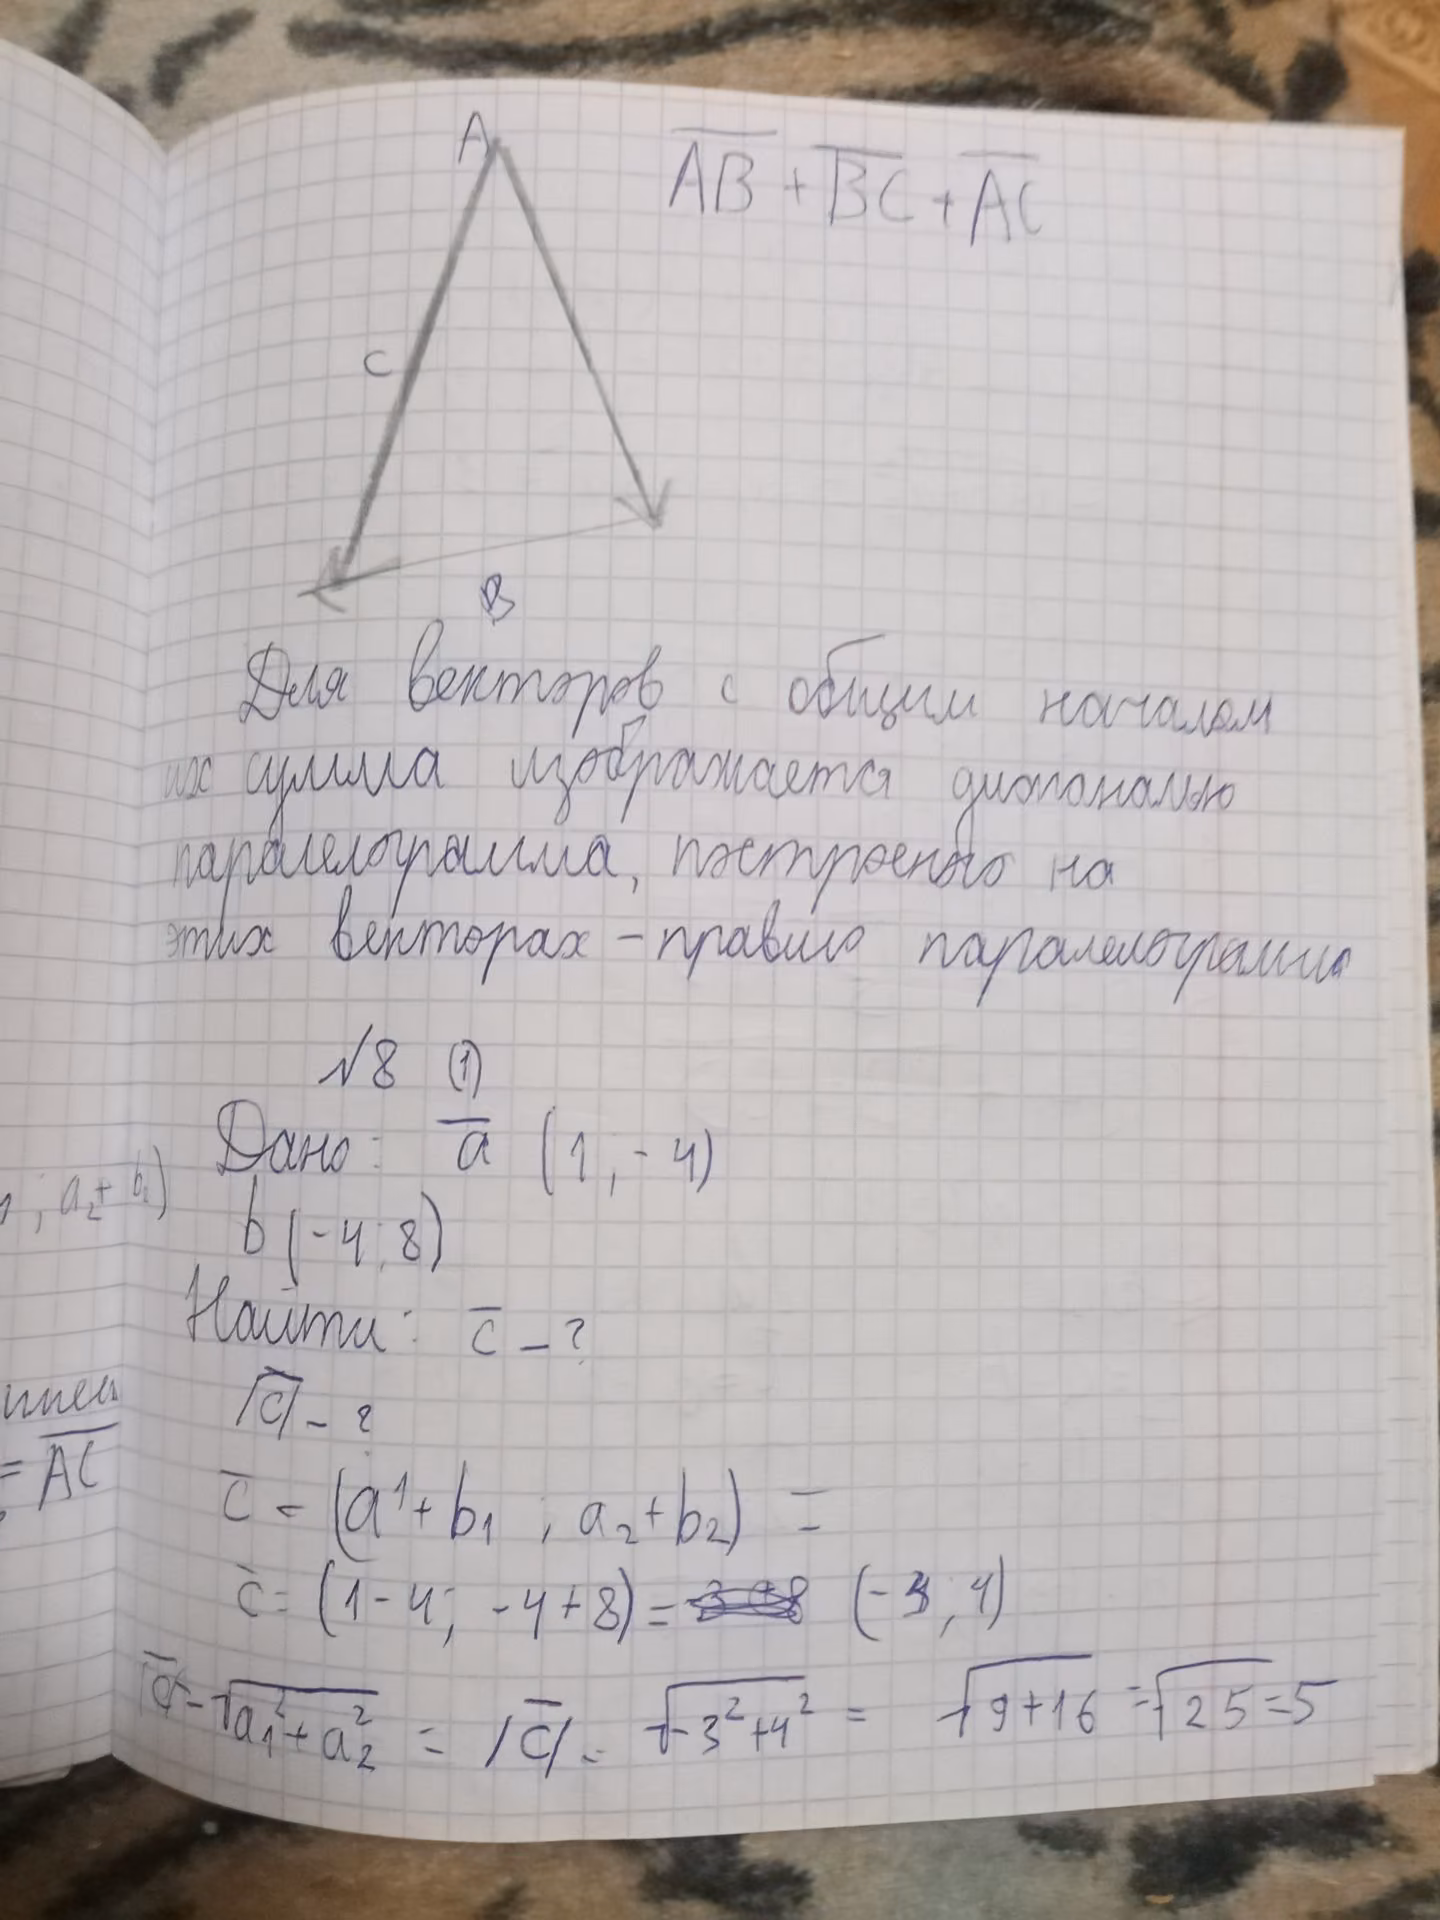 A
AB + BC + AC
C
B
Для векторов с общим началом
их сумма изображается диагональю
паралелограмма, построеного на
этих векторах - правило паралелограмма
№8 (1)
Дано: a (1; -4)
; a₂+ b₂)
b (-4; 8)
Найти: c - ?
|c| - ?
= AC
c = (a¹ + b₁ ; a₂ + b₂) =
c = (1-4; -4+8) = (-3; 4)
|c| - √a₁² + a₂² = |c| - √-3² + 4² = √9+16 = √25 = 5